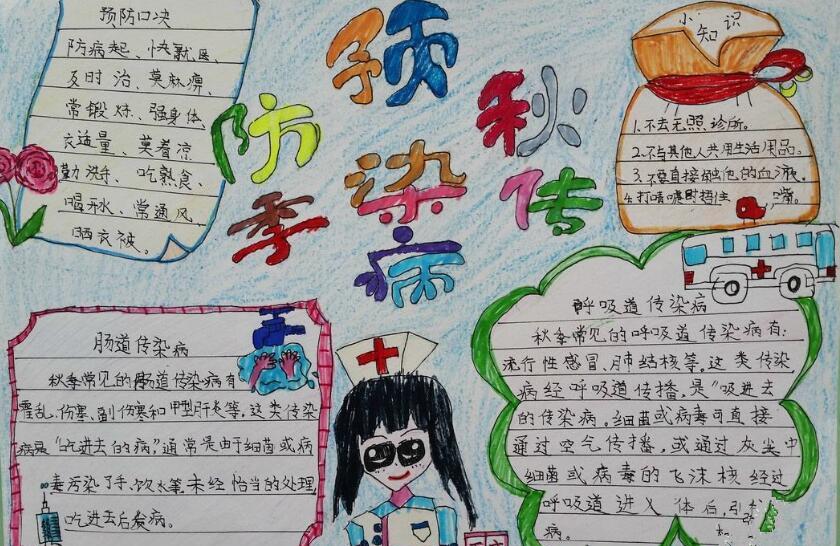 预防秋季传染病
预防口决
防病起、快就医、
及时治、莫麻痹、
常锻炼、强身体、
衣适量、莫着凉
勤洗手、吃熟食、
喝开水、常通风、
晒衣被。
小知识
1.不去无照诊所。
2.不与其他人共用生活用品。
3.不要直接触他的血液。
4.打喷嚏时挡住嘴。
肠道传染病
秋季常见的肠道传染病有
霍乱、伤寒、副伤寒和甲型肝炎等。这类传染
病是"吃进去的病"通常是由于细菌或病
毒污染了手、饮水等。未经恰当的处理
吃进去后发病。
呼吸道传染病
秋季常见的呼吸道传染病有:
流行性感冒、肺结核等。这类传染
病经呼吸道传播,是"吸进去
的传染病。细菌或病毒可直接
通过空气传播,或通过灰尘中
细菌或病毒的飞沫核经过
呼吸道进入体后,引
病。